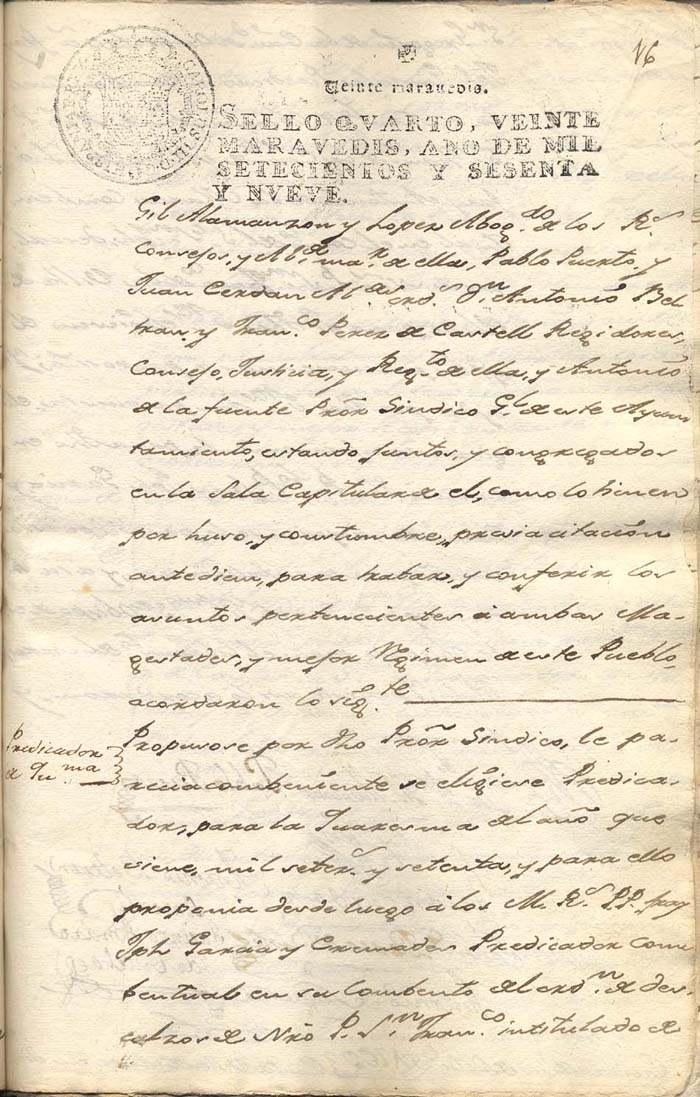 16
Veinte maravedis.
SELLO QVARTO, VEINTE
MARAVEDIS, AÑO DE MIL
SETECIENTOS Y SESENTA
Y NVEVE.
Gil Alamanzon y Lopez Abog.do de los R.s
Consejos, y Al.de ma.r de ella, Pablo Puerto, y
Juan Cerdan Al.des ord.s D.n Antonio Bel
tran, y Fran.co Perez de Castell Regidores,
Consejo, Justicia, y Reg.to de ella, y Antonio
de la fuente Pror Sindico G.l de este Ayun
tamiento, estando juntos, y congregados
en la Sala Capitular de el, como lo tienen
por huso, y coustumbre, presia citacion
ante diem, para tratar, y conferir los
asuntos pertenecientes à ambas Ma-
gestades, y mejor Regimen de este Pueblo,
acordaron lo sig.te
Predicador
de Qu.ma
Propusose por dho Pror Sindico, le pa-
recia combeniente se eligiese Predica-
dor, para la Quaresma del año que
viene, mil setec.s y setenta, y para ello
proponia desde luego à los M. R.s P.P. fray
Jph Garcia y Cremades Predicador com
bentual en su Combento del ord.n de des-
calzos de Nro P. S.n Fran.co intitulado de